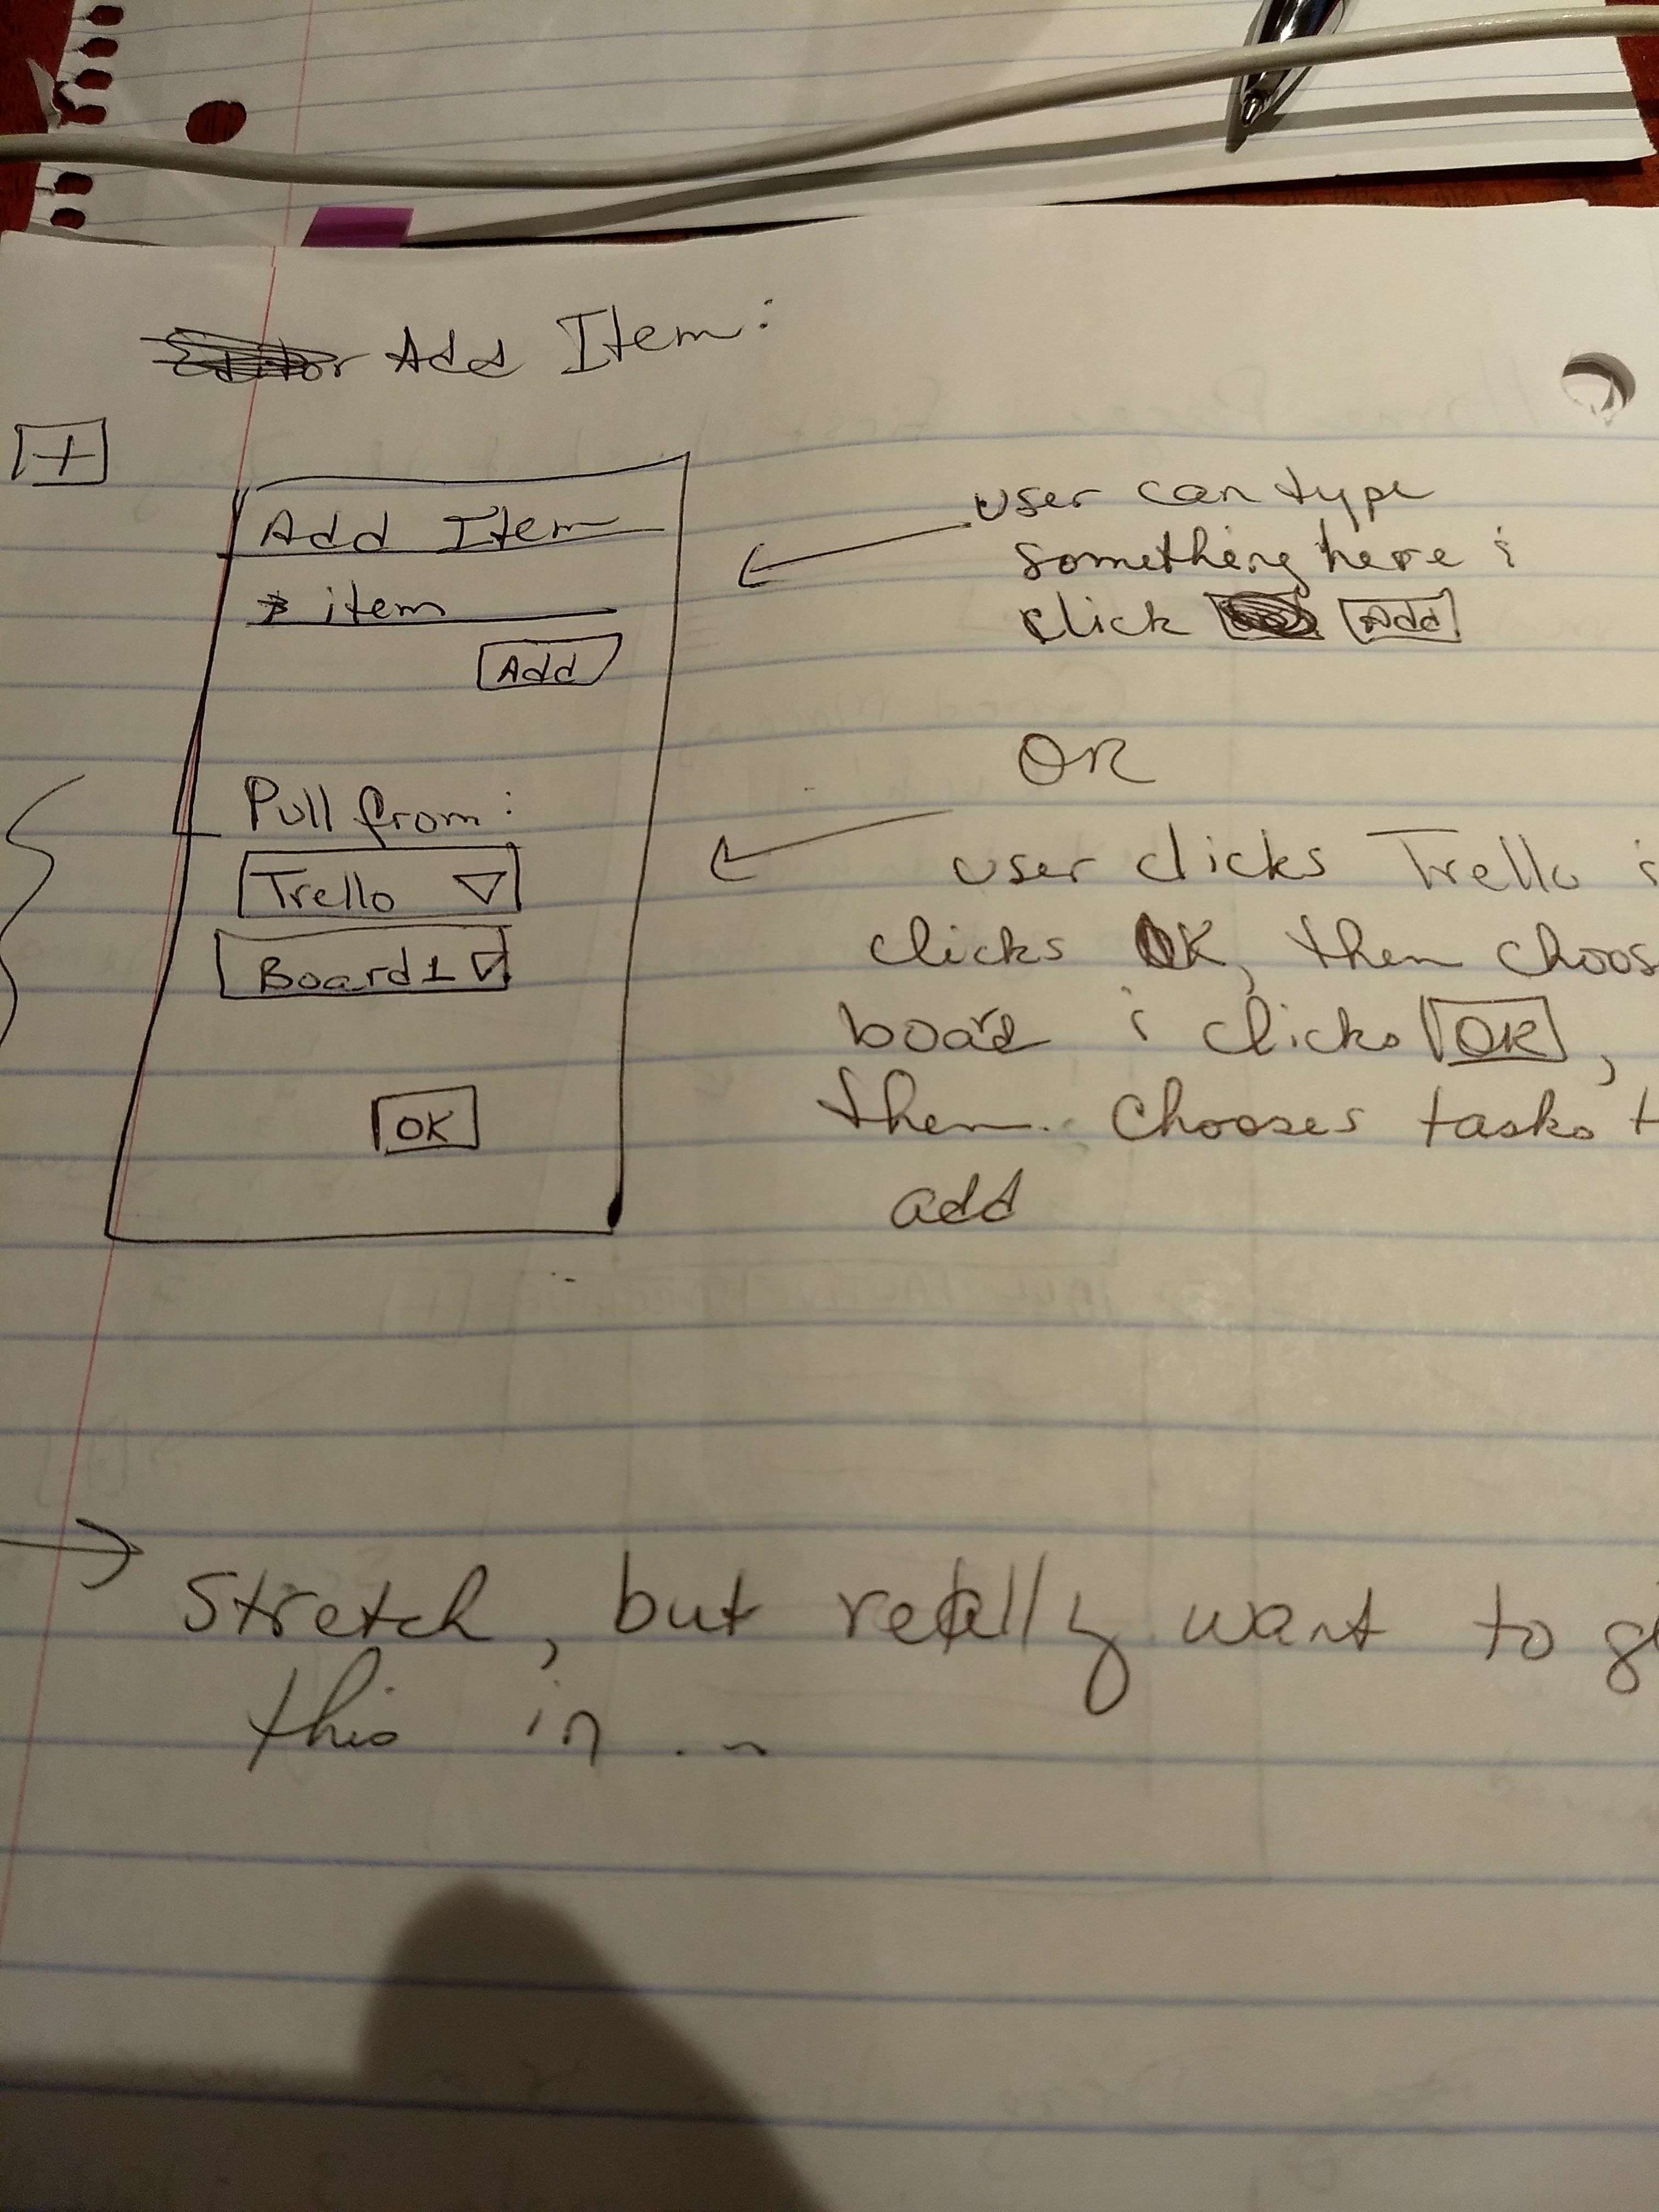 Add Item:
+
Add Item
item
Add
Pull from:
Trello
Board 1
OK
user can type
something here &
click Add
OR
user clicks Trello &
clicks OK, then choos
board & clicks OK,
then chooses tasks t
add
Stretch, but really want to g
this in...